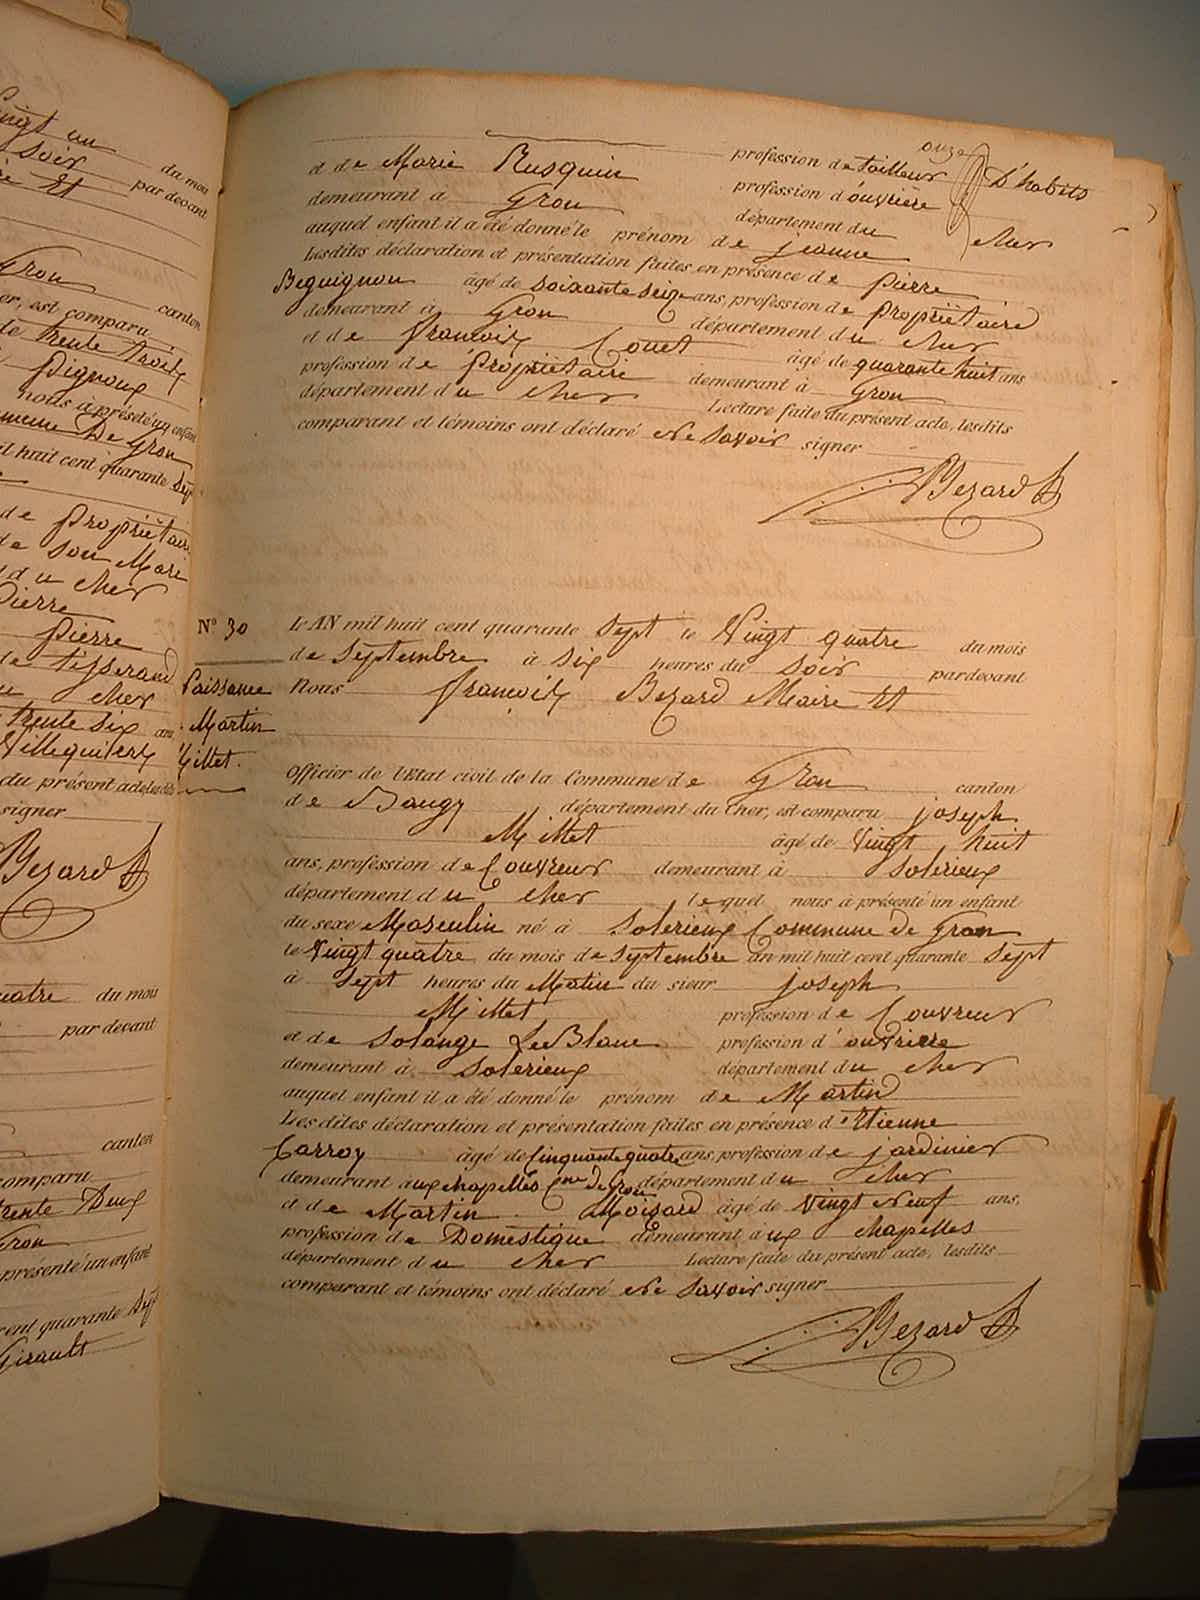 Vingt un du mois
Soir par devant
Et
Gron canton
er, est comparu
de trente trois
Pignoux
nous a présété un enfant
mmune De Gron
il huit cent quarante Sept
de Propriétaire
de Son Mari
du cher
Pierre
Pierre
de tisserand
cher
trente Six ans
Villequiers
du présent acte, lesdits
signer
Bezard
quatre du mois
par devant
canton
comparu
trente Deux
Gron
présenté un enfant
cent quarante Sept
Girault
onze
profession de tailleur D'habits
et de Marie Rusquin profession d'ouvrière
demeurant à Gron département du cher
auquel enfant il a été donné le prénom de jeanne
Lesdites déclaration et présentation faites en présence de Pierre
Beguignon âgé de soixante seize ans, profession de Propriétaire
demeurant à Gron département du cher
et de François Couet âgé de quarante huit ans
profession de Propriétaire demeurant à Gron
département du cher Lecture faite du présent acte, lesdits
comparant et témoins ont déclaré Ne Savoir signer
Bezard
N° 30 le AN mil huit cent quarante Sept le Vingt quatre du mois
de Septembre à Six heures du Soir pardevant
Naissance Nous François Bezard Maire Et
Martin
Millet.
Officier de l'Etat civil de la Commune de Gron canton
de Baugy département du Cher, est comparu joseph
Millet âgé de Vingt huit
ans, profession de Couvreur demeurant à Solerieux
département du cher lequel nous à présenté un enfant
du sexe Masculin né à Solerieux Commune de Gron
le Vingt quatre du mois de Septembre an mil huit cent quarante Sept
à Sept heures du Matin du sieur joseph
Millet profession de Couvreur
et de Solange LeBlanc profession d'ouvriere
demeurant à Solerieux département du cher
auquel enfant il a été donné le prénom de Martin
Les dites déclaration et présentation faites en présence d'Etienne
Carroy âgé de Cinquante quatre ans, profession de jardinier
demeurant aux chapelles Cne de Gron département du cher
et de Martin Moisard âgé de Vingt Neuf ans,
profession de Domestique demeurant à ux chapelles
département du cher Lecture faite du présent acte, lesdits
comparant et témoins ont déclaré Ne Savoir signer
Bezard